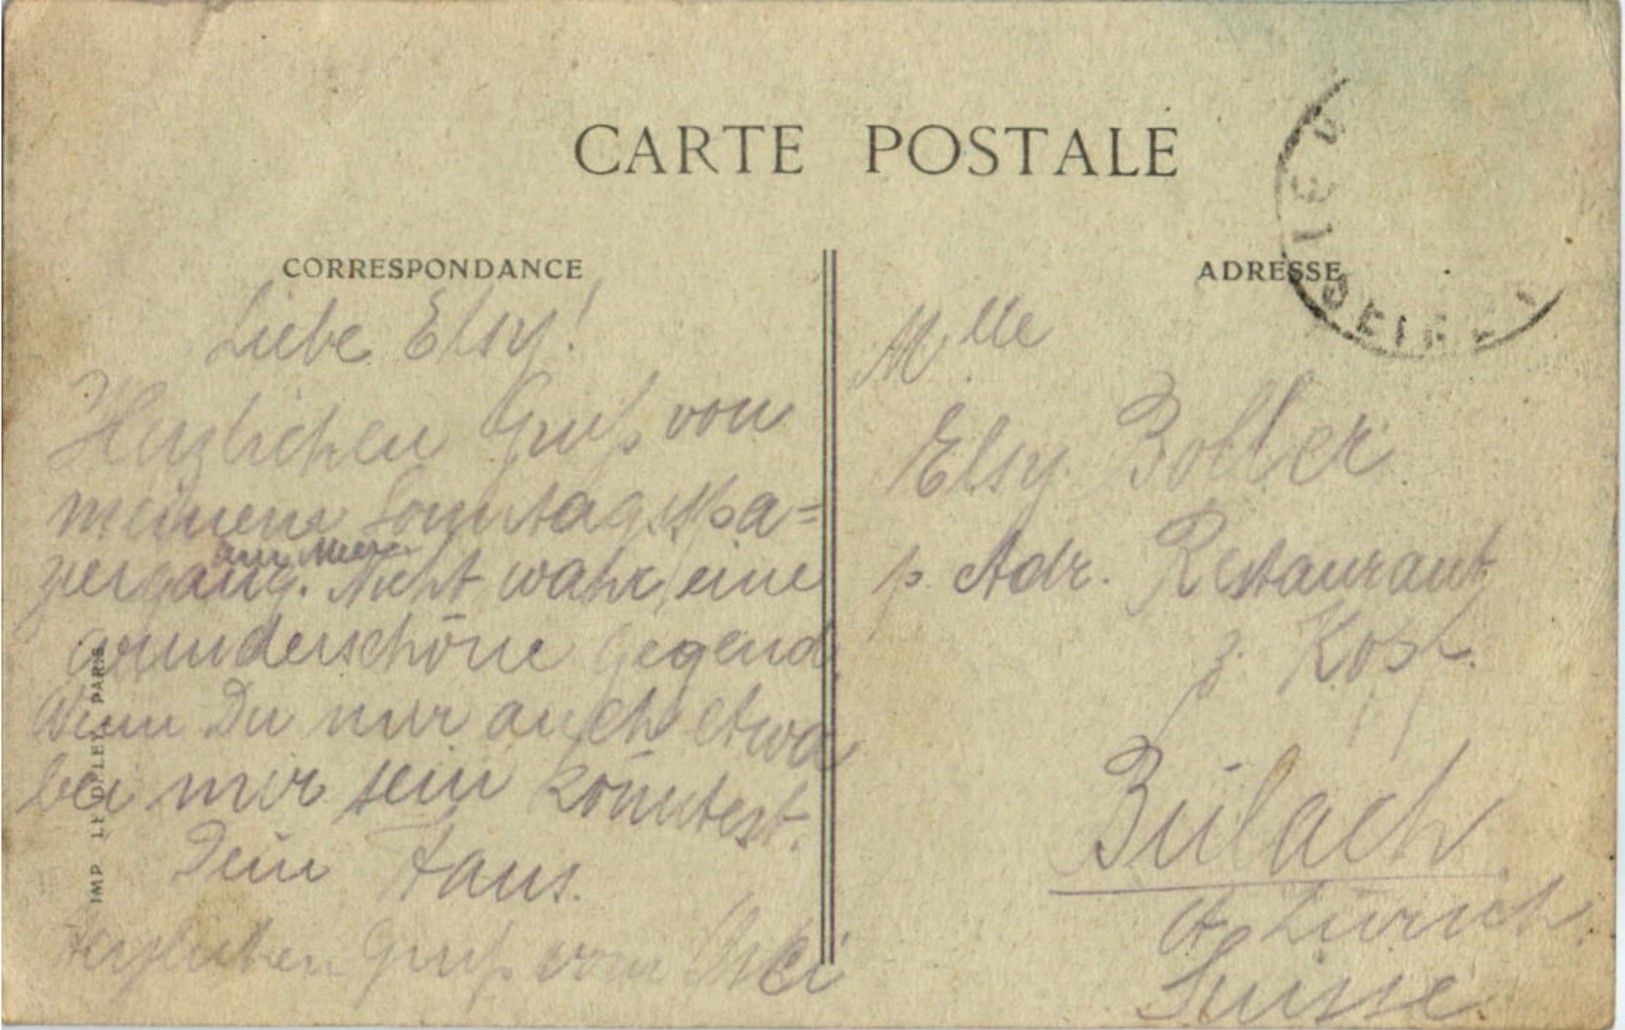 CARTE POSTALE
CORRESPONDANCE
Liebe Elsy!
Herzlichen Gruß von
meinem Sonntagsspa=
am Meere
ziergang. Nicht wahr, eine
wunderschöne Gegend.
Wenn Du nur auch etwa
bei mir sein könntest.
Dein Hans.
Herzlichen Gruß vom
IMP LE DELEY PARIS
ADRESSE
Mlle
Elsy Boller
p. Adr. Restaurant
z. Kopf.
Bülach
Ct. Zürich
Suisse